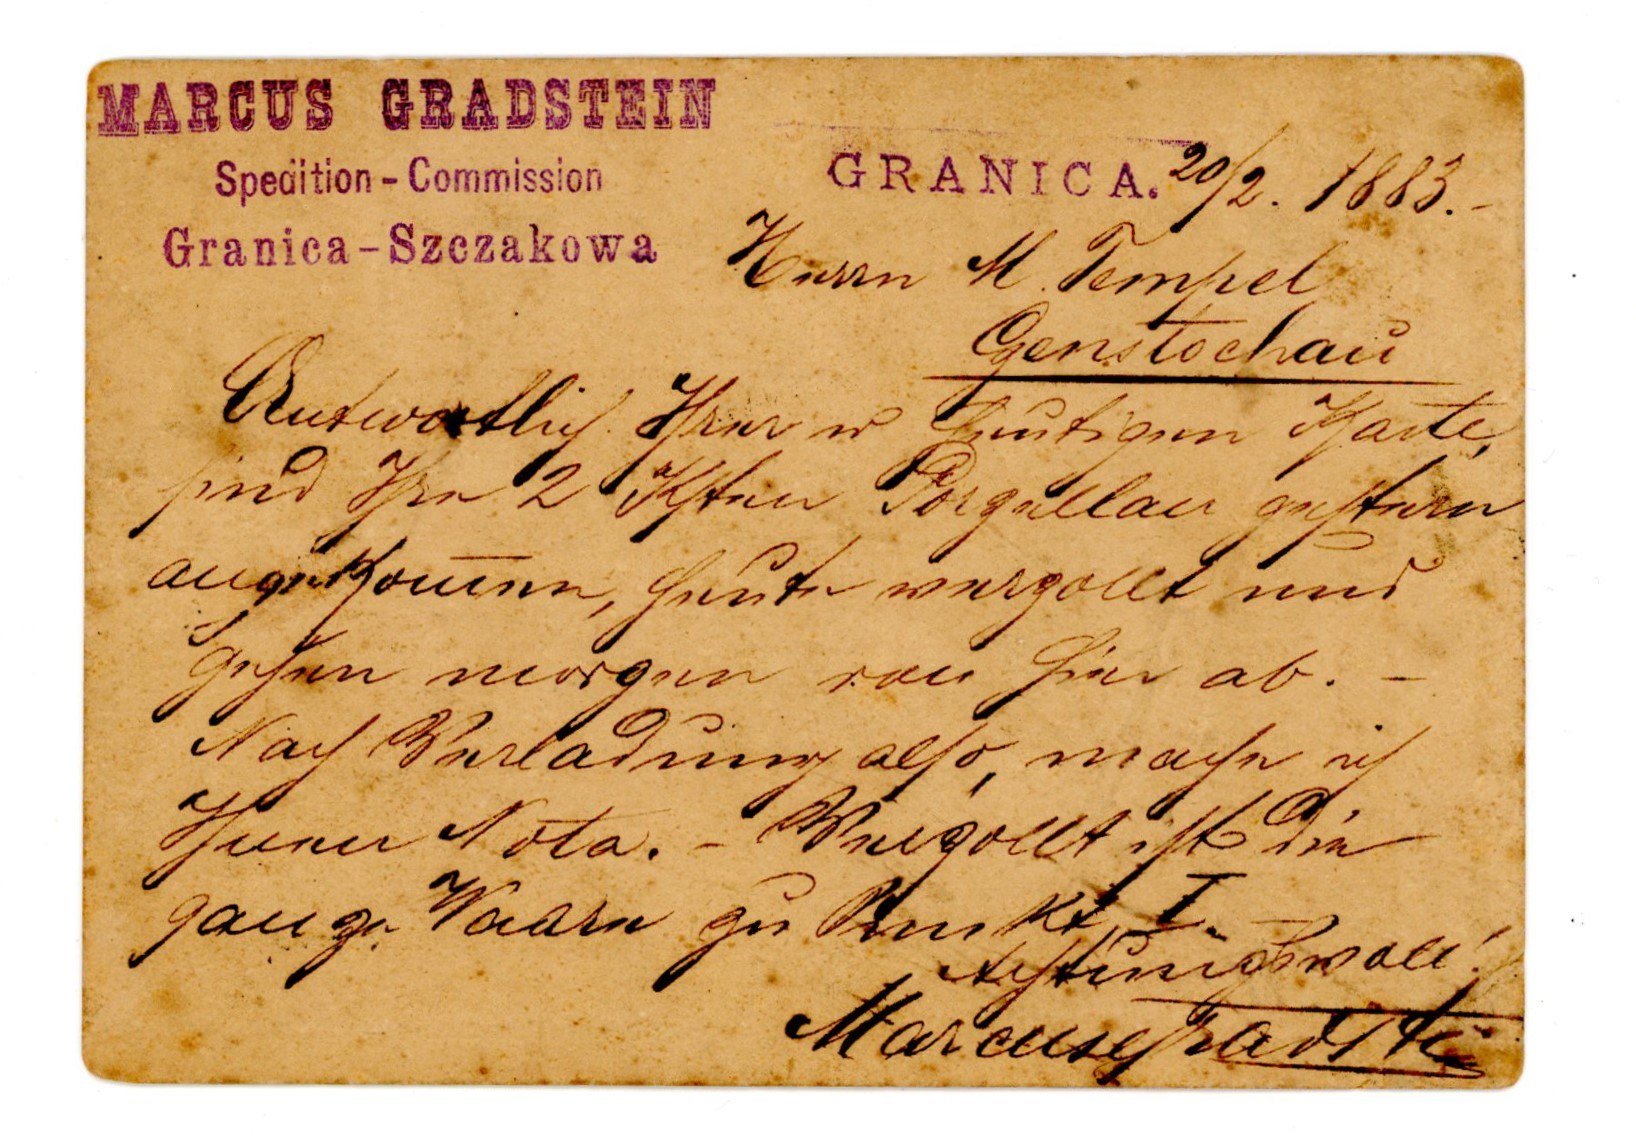 MARCUS GRADSTEIN
Spedition - Commission
Granica - Szczakowa
GRANICA. 20/2. 1883.-
Herrn M. Tempel
Czenstochau
Antwortlich Ihrer w heutigen Karte,
sind Ihre 2 Kisten Porzellan gestern
angekom̅en, heute verzollt und
gehen morgen von hier ab. -
Nach Verladung also, mache ich
Ihnen Nota. - Verzollt ist die
ganze Waare zu Punkt I. -
Achtungsvoll!
Marcus Gradstein